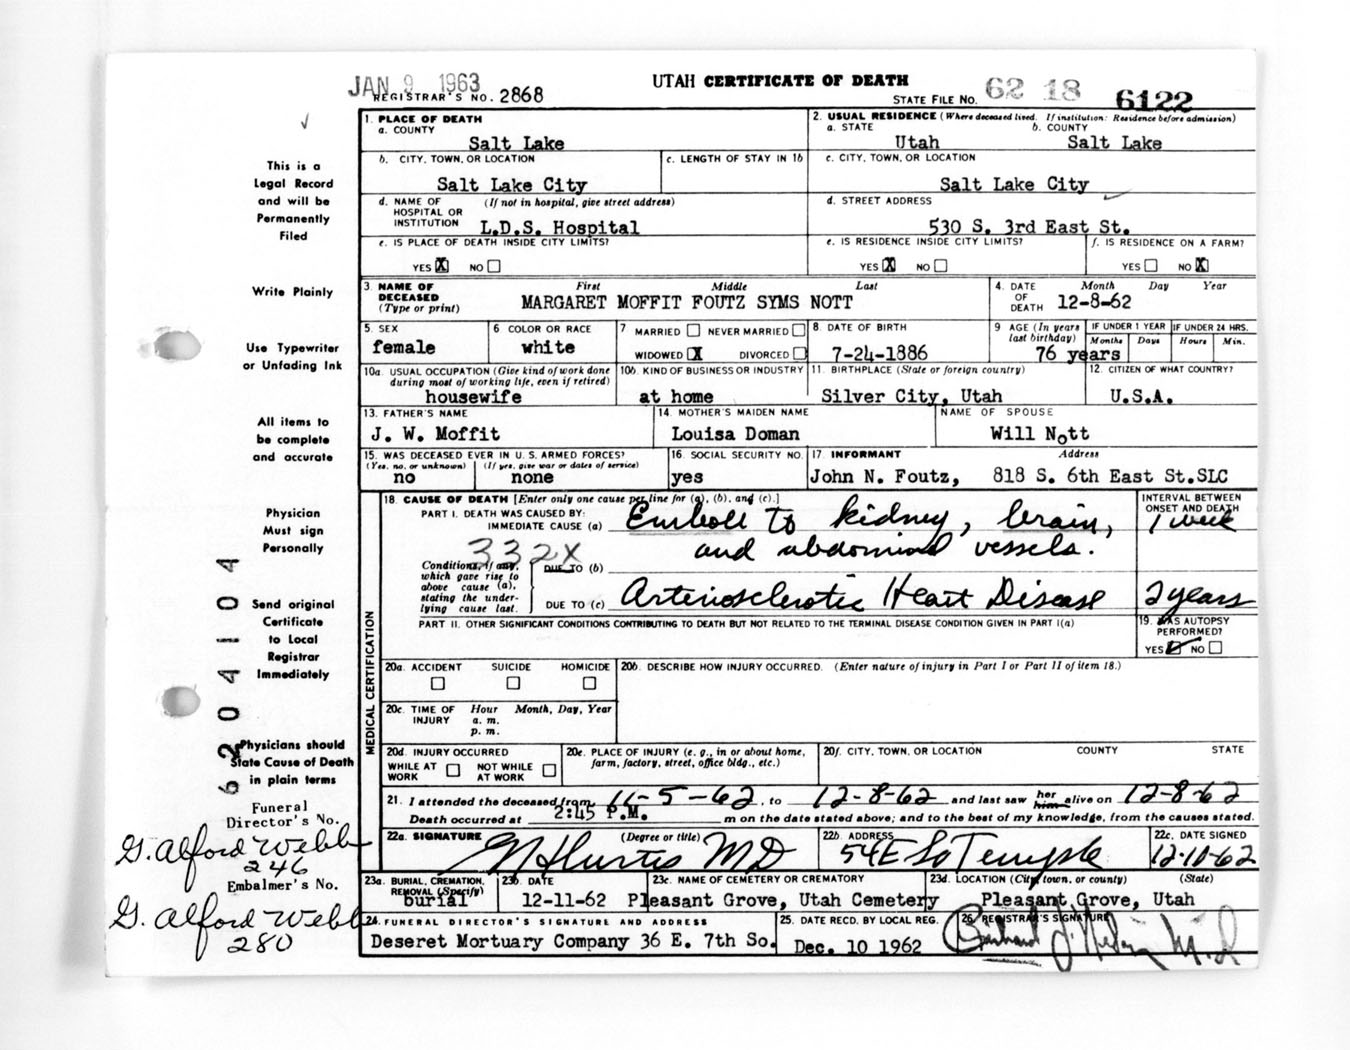 JAN 9 1963
UTAH CERTIFICATE OF DEATH
REGISTRAR'S NO. 2868
STATE FILE NO. 62 18 6122
This is a
Legal Record
and will be
Permanently
Filed
Write Plainly
Use Typewriter
or Unfading Ink
All items to
be complete
and accurate
Physician
Must sign
Personally
Send original
Certificate
to Local
Registrar
Immediately
Physicians should
State Cause of Death
in plain terms
Funeral
Director's No.
G. Alford Webb
246
Embalmer's No.
G. Alford Webb
280
6204104
1. PLACE OF DEATH
a. COUNTY
Salt Lake
2. USUAL RESIDENCE (Where deceased lived. If institution: Residence before admission)
a. STATE b. COUNTY
Utah Salt Lake
b. CITY, TOWN, OR LOCATION
Salt Lake City
c. LENGTH OF STAY IN 1b
c. CITY, TOWN, OR LOCATION
Salt Lake City
d. NAME OF HOSPITAL OR INSTITUTION (If not in hospital, give street address)
L.D.S. Hospital
d. STREET ADDRESS
530 S. 3rd East St.
e. IS PLACE OF DEATH INSIDE CITY LIMITS?
YES X NO
e. IS RESIDENCE INSIDE CITY LIMITS?
YES X NO
f. IS RESIDENCE ON A FARM?
YES NO X
3. NAME OF DECEASED (Type or print) First Middle Last
MARGARET MOFFIT FOUTZ SYMS NOTT
4. DATE OF DEATH Month Day Year
12-8-62
5. SEX
female
6 COLOR OR RACE
white
7 MARRIED NEVER MARRIED
WIDOWED X DIVORCED
8. DATE OF BIRTH
7-24-1886
9 AGE (In years last birthday)
76 years
IF UNDER 1 YEAR
Months Days
IF UNDER 24 HRS.
Hours Min.
10a. USUAL OCCUPATION (Give kind of work done during most of working life, even if retired)
housewife
10b. KIND OF BUSINESS OR INDUSTRY
at home
11. BIRTHPLACE (State or foreign country)
Silver City, Utah
12. CITIZEN OF WHAT COUNTRY?
U.S.A.
13. FATHER'S NAME
J. W. Moffit
14. MOTHER'S MAIDEN NAME
Louisa Doman
NAME OF SPOUSE
Will Nott
15. WAS DECEASED EVER IN U. S. ARMED FORCES?
(Yes, no, or unknown) (If yes, give war or dates of service)
no none
16. SOCIAL SECURITY NO.
yes
17. INFORMANT Address
John N. Foutz, 818 S. 6th East St.SLC
MEDICAL CERTIFICATION
18. CAUSE OF DEATH [Enter only one cause per line for (a), (b), and (c).]
PART I. DEATH WAS CAUSED BY:
IMMEDIATE CAUSE (a) Emboli to kidney, brain,
and abdominal vessels.
INTERVAL BETWEEN ONSET AND DEATH
1 week
332X
Conditions, if any, which gave rise to above cause (a), stating the underlying cause last.
DUE TO (b)
DUE TO (c) Arteriosclerotic Heart Disease
2 years
PART II. OTHER SIGNIFICANT CONDITIONS CONTRIBUTING TO DEATH BUT NOT RELATED TO THE TERMINAL DISEASE CONDITION GIVEN IN PART I(a)
19. WAS AUTOPSY PERFORMED?
YES NO
20a. ACCIDENT SUICIDE HOMICIDE
20b. DESCRIBE HOW INJURY OCCURRED. (Enter nature of injury in Part I or Part II of item 18.)
20c. TIME OF INJURY Hour Month, Day, Year
a. m.
p. m.
20d. INJURY OCCURRED
WHILE AT WORK NOT WHILE AT WORK
20e. PLACE OF INJURY (e. g., in or about home, farm, factory, street, office bldg., etc.)
20f. CITY, TOWN, OR LOCATION COUNTY STATE
21. I attended the deceased from 11-5-62, to 12-8-62 and last saw her him alive on 12-8-62
Death occurred at 2:45 P.M. m on the date stated above; and to the best of my knowledge, from the causes stated.
22a. SIGNATURE (Degree or title)
Curtis MD
22b. ADDRESS
54 E So Temple
22c. DATE SIGNED
12-10-62
23a. BURIAL, CREMATION, REMOVAL (Specify)
burial
23b. DATE
12-11-62
23c. NAME OF CEMETERY OR CREMATORY
Pleasant Grove, Utah Cemetery
23d. LOCATION (City, town, or county) (State)
Pleasant Grove, Utah
24. FUNERAL DIRECTOR'S SIGNATURE AND ADDRESS
Deseret Mortuary Company 36 E. 7th So.
25. DATE RECD. BY LOCAL REG.
Dec. 10 1962
26. REGISTRAR'S SIGNATURE